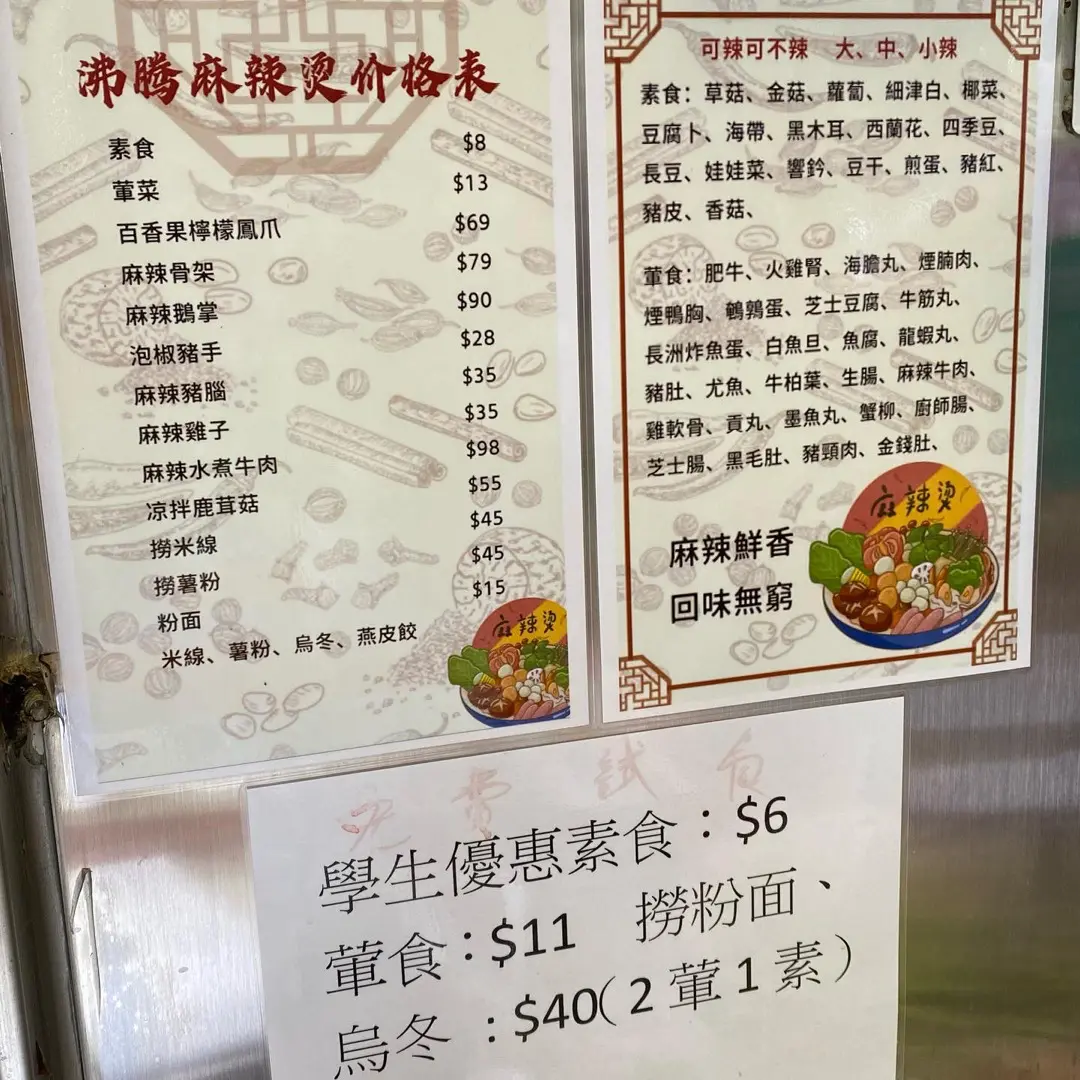 沸腾麻辣烫价格表
素食 $8
葷菜 $13
百香果檸檬鳳爪 $69
麻辣骨架 $79
麻辣鵝掌 $90
泡椒豬手 $28
麻辣豬腦 $35
麻辣雞子 $35
麻辣水煮牛肉 $98
凉拌鹿茸菇 $55
撈米線 $45
撈薯粉 $45
粉面 $15
米線、薯粉、烏冬、燕皮餃
麻辣烫
可辣可不辣 大、中、小辣
素食：草菇、金菇、蘿蔔、細津白、椰菜、
豆腐卜、海帶、黑木耳、西蘭花、四季豆、
長豆、娃娃菜、響鈴、豆干、煎蛋、豬紅、
豬皮、香菇、
葷食：肥牛、火雞腎、海膽丸、煙腩肉、
煙鴨胸、鵪鶉蛋、芝士豆腐、牛筋丸、
長洲炸魚蛋、白魚旦、魚腐、龍蝦丸、
豬肚、尤魚、牛柏葉、生腸、麻辣牛肉、
雞軟骨、貢丸、墨魚丸、蟹柳、廚師腸、
芝士腸、黑毛肚、豬頸肉、金錢肚、
麻辣鮮香
回味無窮
麻辣烫
免費試食
學生優惠素食：$6
葷食：$11 撈粉面、
烏冬：$40(2葷1素）